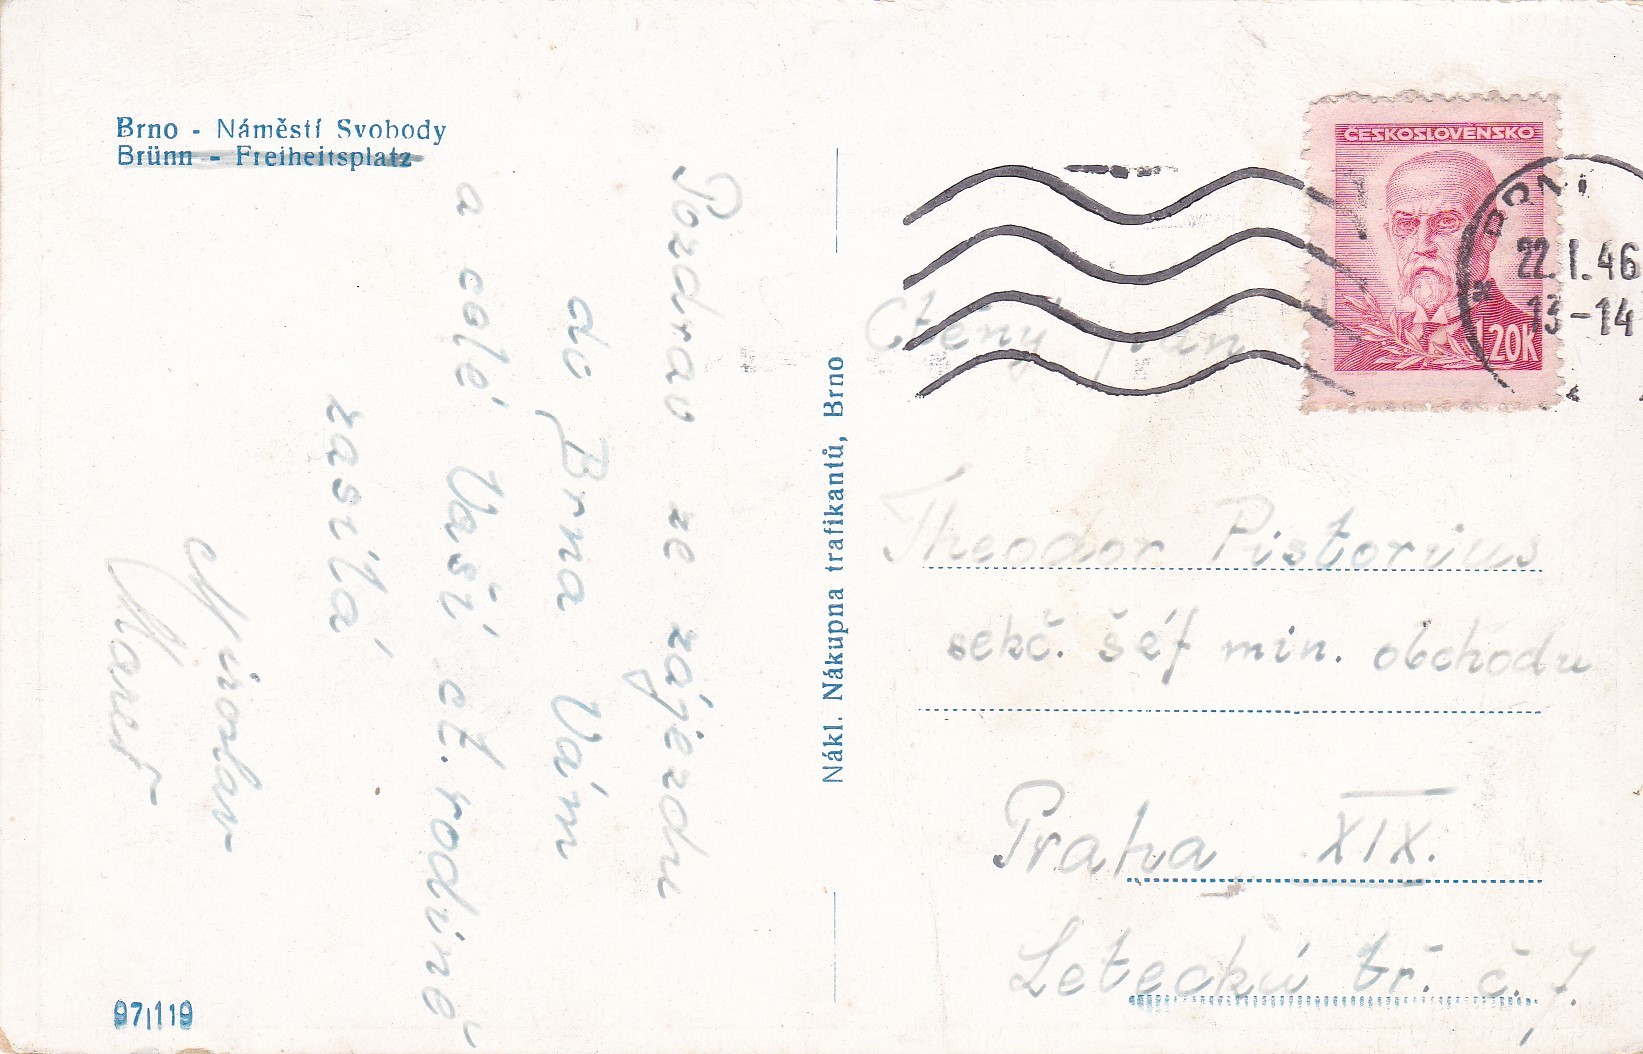 Brno - Náměstí Svobody
Brünn - Freiheitsplatz
Pozdrav ze zájezdu
do Brna Vám
a celé Vaší ct. rodině
zasílá
Miroslav
Mareš
97/119
Nákl. Nákupna trafikantů, Brno
ČESKOSLOVENSKO
1,20K
22.I.46
13-14
Ctěný pan
Theodor Pistorius
sekč. šéf min. obchodu
Praha XIX.
Letecká tř. č. 7.